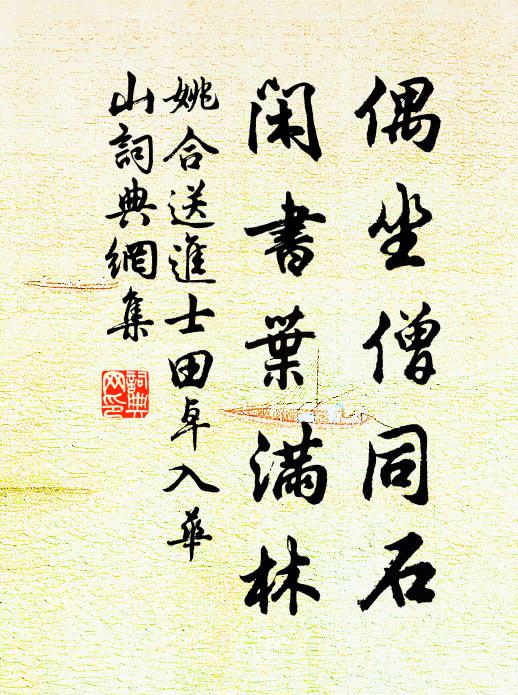 偶坐僧同石
閑書葉滿林
姚合送進士田卓入華
山詞典網集
詞典
网印